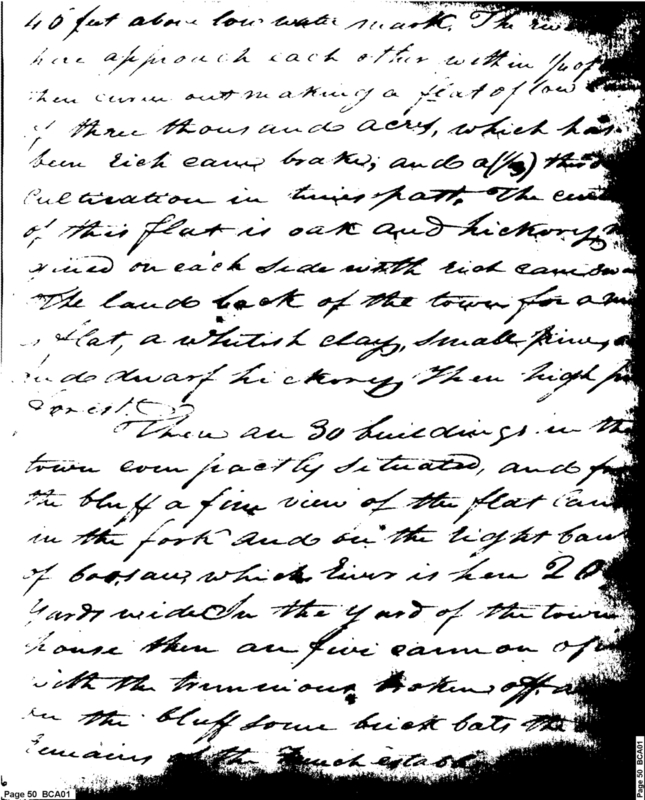 46 feet above low water mark. The
here approach each other within 1/4 of
then curve out making a flat of low
of three thousand acres, which has
been rich cane brake; and third
cultivation in times past. The
of this flat is oak and hickory,
on each side with rich cane
The land back of the town for a
is flat, a whitish clay, small pine,
and dwarf hickory, Then high
forest.
There are 30 buildings in the
town compactly situated, and
the bluff a fine view of the flat
in the fork and on the right
of Coosau, which river is here 20
yards wide In the yard of the town
house there are five cannon of
with the trunnions broken off.
on the bluff some brick bats the
remains of the french
Page 50 BCA01
Page 50 BCA01